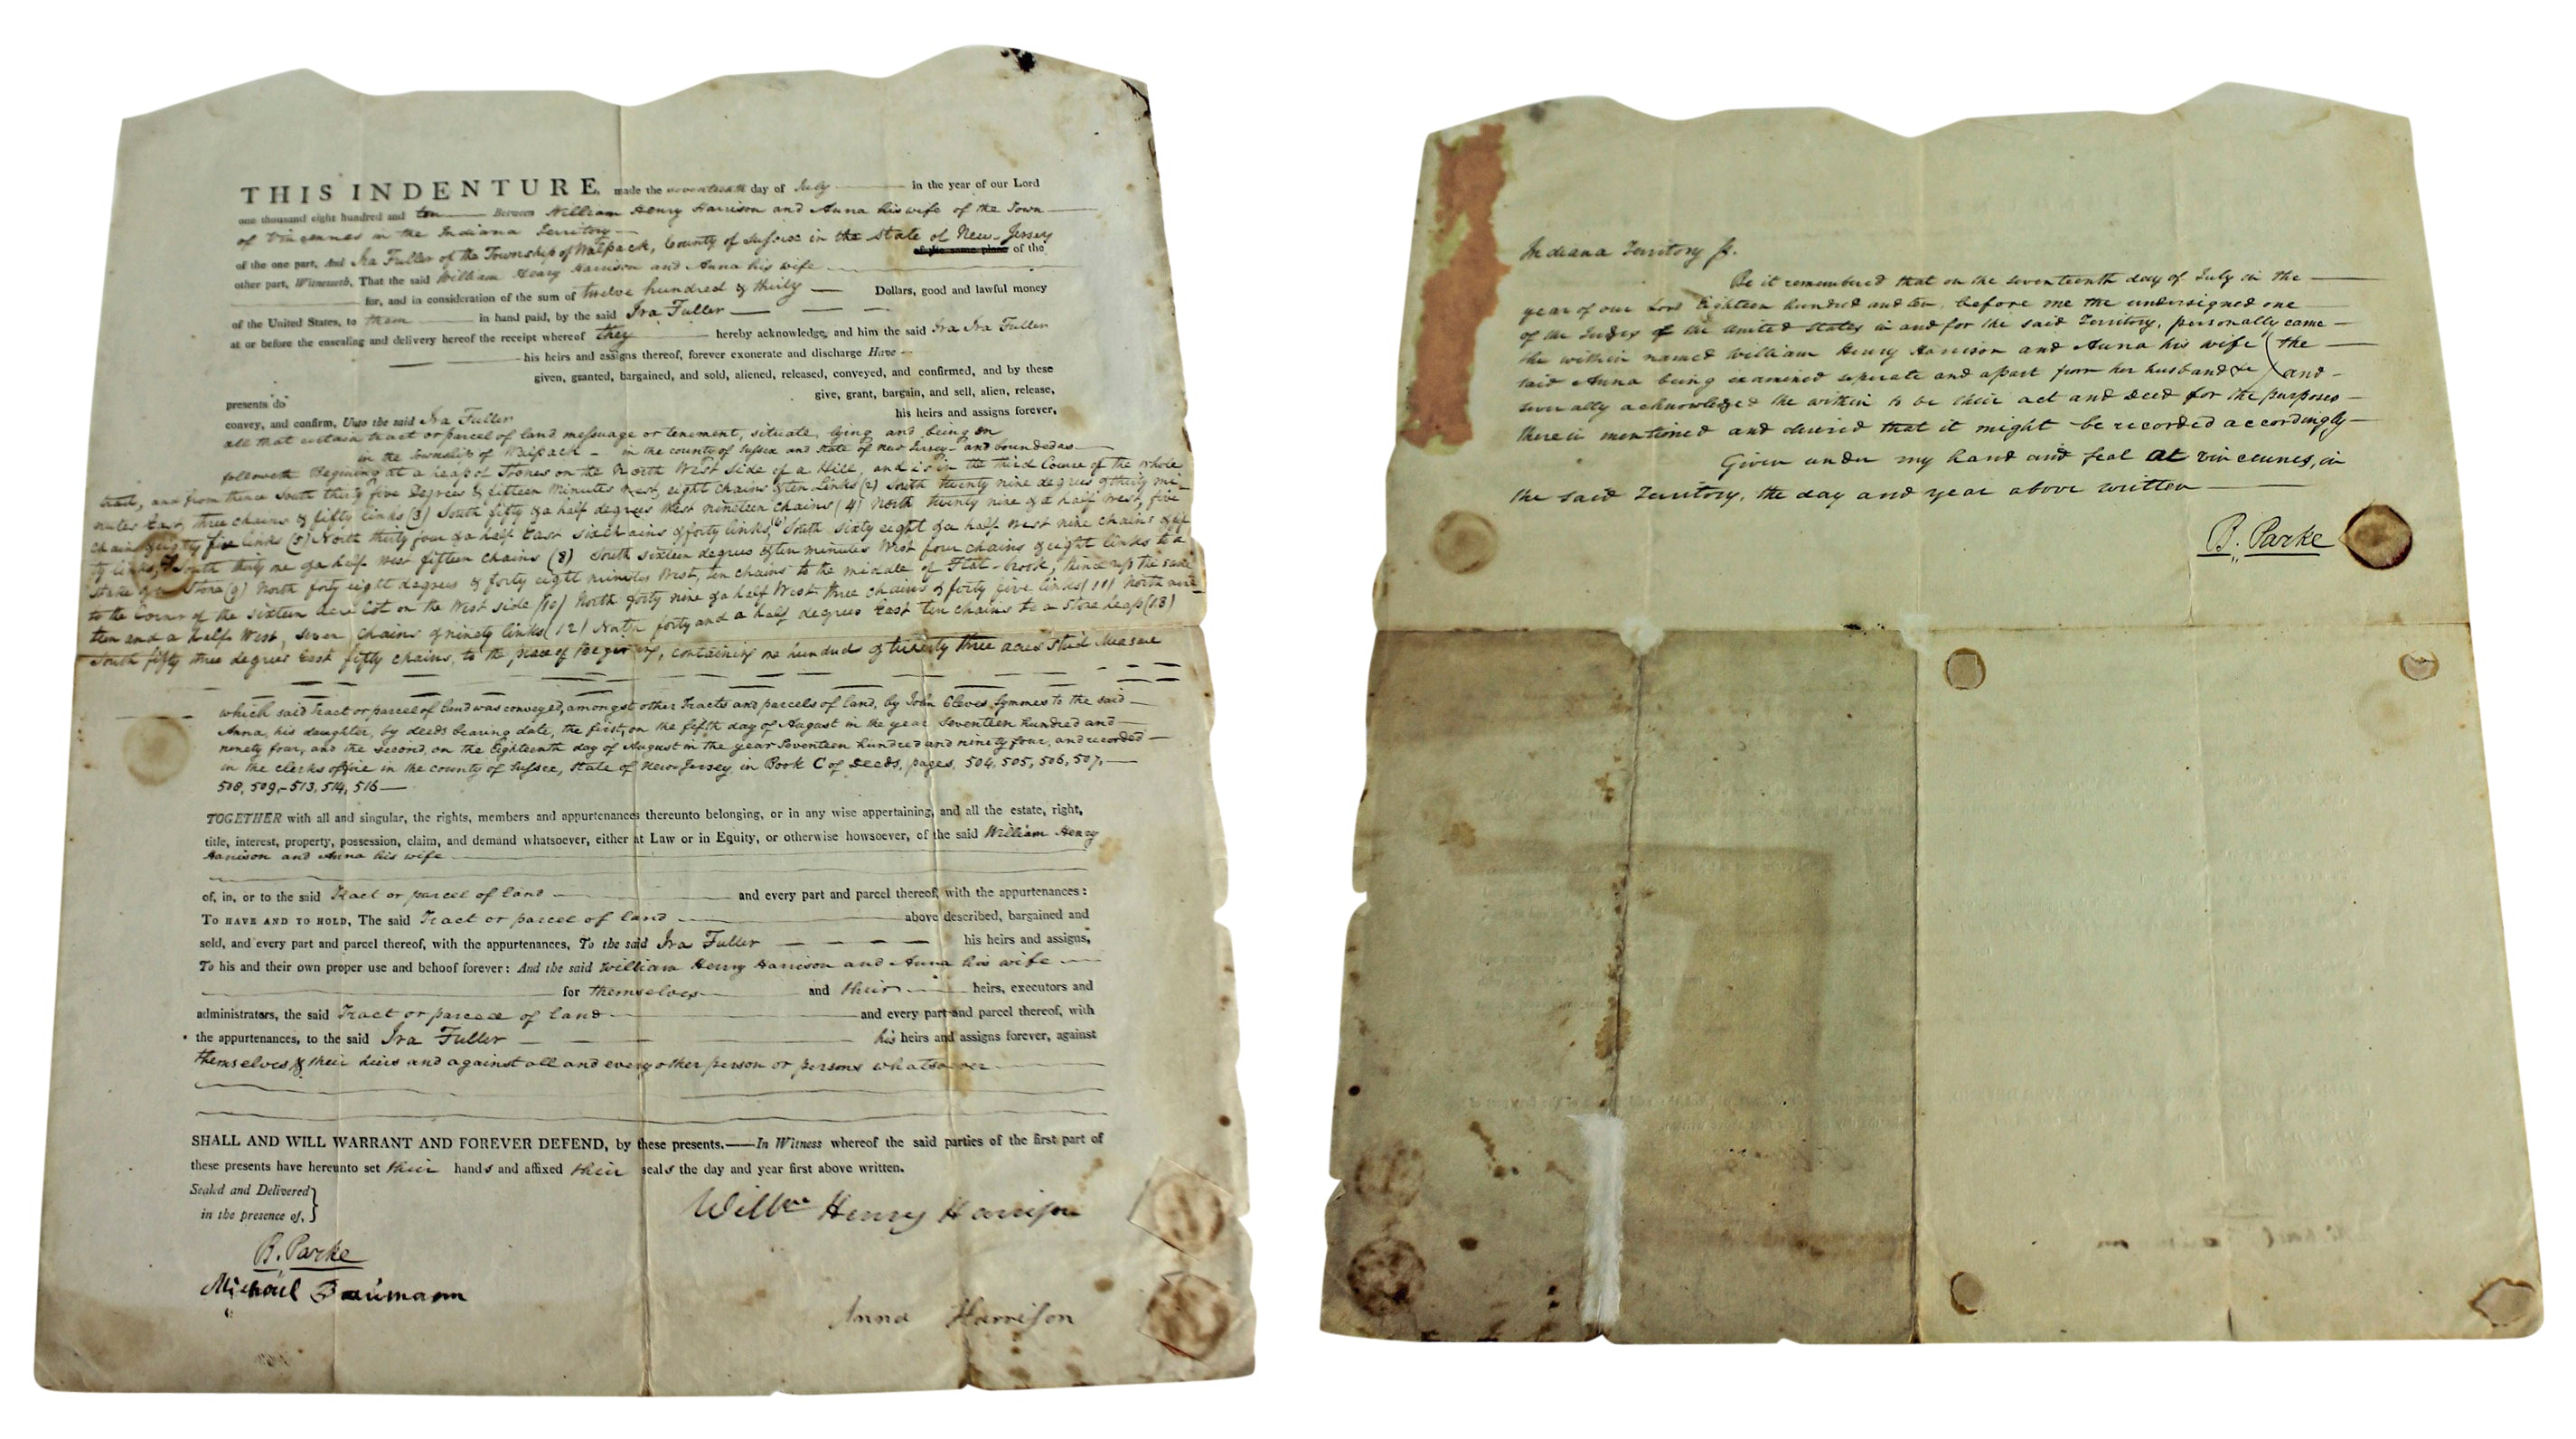 THIS INDENTURE, made the seventeenth day of July in the year of our Lord
one thousand eight hundred and ten Between William Henry Harrison and Anna his wife of the Town
of Vincennes in the Indiana Territory
of the one part, And Ira Fuller of the Township of Walpack, County of Sussex in the State of New-Jersey of the same place of the
other part, Witnesseth, That the said William Henry Harrison and Anna his wife
for, and in consideration of the sum of twelve hundred & thirty Dollars, good and lawful money
of the United States, to them in hand paid, by the said Ira Fuller
at or before the ensealing and delivery hereof the receipt whereof they hereby acknowledge, and him the said Ira Ira Fuller
his heirs and assigns thereof, forever exonerate and discharge Have
given, granted, bargained, and sold, aliened, released, conveyed, and confirmed, and by these
presents do give, grant, bargain, and sell, alien, release,
convey, and confirm, Unto the said Ira Fuller his heirs and assigns forever,
all that certain tract or parcel of land messuage or tenement, situate, lying and being in
in the Township of Walpack - in the county of Sussex and State of New Jersey - and bounded as
followeth Begining at a heap of Stones on the North West side of a Hill, and is in the third Course of the whole
tract, and from thence South thirty five Degrees & fifteen Minutes West, eight chains & ten Links (2) South twenty nine degrees & thirty mi-
nutes East, three chains & fifty links (3) South fifty & a half degrees West nineteen chains (4) North twenty nine & a half West, five
chains & eighty five links (5) North thirty four & a half East six chains & forty links (6) South sixty eight & a half West nine chains & fif
ty links, (7) South thirty one & a half West fifteen chains (8) South sixteen degrees & ten minutes West four chains & eight links to a
Stake & Stone (9) North forty eight degrees & forty eight minutes West, ten chains to the middle of Flat-brook, thence up the same
to the Corner of the sixteen Acre Lot on the West side (10) North forty nine & a half West three chains & forty five links (11) North nine-
teen and a half West, seven chains & ninety links (12) North forty and a half degrees East ten chains to a Stone heap (13)
South fifty three degrees East fifty chains, to the place of Begining, containing one hundred & twenty three acres Strict Measure
which said Tract or parcel of land was conveyed, amongst other Tracts and parcels of land, by John Cleves Symmes to the said
Anna, his daughter, by deeds bearing date, the first, on the fifth day of August in the year Seventeen hundred and
ninety four, and the second, on the Eighteenth day of August in the year Seventeen hundred and ninety four, and recorded
in the clerks office in the county of Sussex, State of New-Jersey in Book C of Deeds, pages, 504, 505, 506, 507,
508, 509, - 513, 514, 516
TOGETHER with all and singular, the rights, members and appurtenances thereunto belonging, or in any wise appertaining, and all the estate, right,
title, interest, property, possession, claim, and demand whatsoever, either at Law or in Equity, or otherwise howsoever, of the said William Henry
Harrison and Anna his wife
of, in, or to the said Tract or parcel of land and every part and parcel thereof, with the appurtenances:
TO HAVE AND TO HOLD, The said Tract or parcel of land above described, bargained and
sold, and every part and parcel thereof, with the appurtenances, To the said Ira Fuller his heirs and assigns,
To his and their own proper use and behoof forever: And the said William Henry Harrison and Anna his wife
for themselves and their heirs, executors and
administrators, the said Tract or parcel of land and every part and parcel thereof, with
the appurtenances, to the said Ira Fuller his heirs and assigns forever, against
themselves & their heirs and against all and every other person or persons whatsoever
SHALL AND WILL WARRANT AND FOREVER DEFEND, by these presents.—In Witness whereof the said parties of the first part of
these presents have hereunto set their hands and affixed their seals the day and year first above written.
Sealed and Delivered
in the presence of,
Willm Henry Harrison
B. Parke
Michael Baumann
Anna Harrison
Indiana Territory ss.
Be it remembered that on the seventeenth day of July in the
year of our Lord Eighteen hundred and ten, before me the undersigned one
of the Judges of the United States in and for the said Territory, personally came
the within named William Henry Harrison and Anna his wife (the
said Anna being examined seperate and apart from her husband &c) and
severally acknowledged the within to be their act and Deed for the purposes
therein mentioned and desired that it might be recorded accordingly
Given under my hand and seal at Vincennes, in
the said Territory, the day and year above written
B. Parke